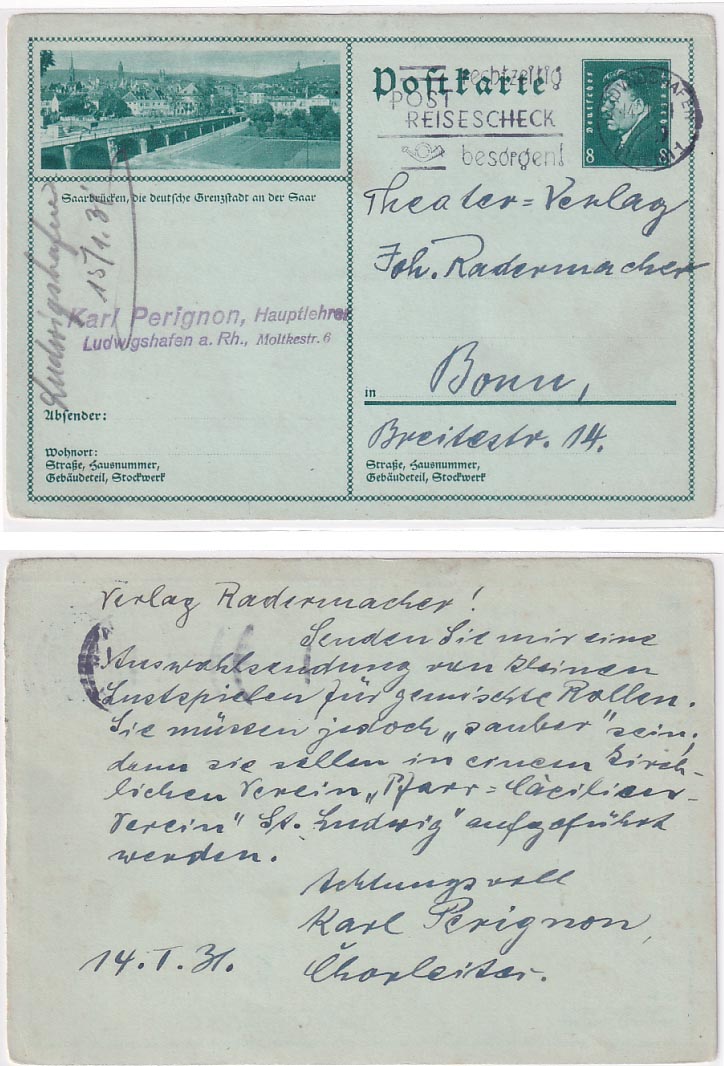 Postkarte
rechtzeitig
POST
REISESCHECK
besorgen!
Deutsches Reich
8
Saarbrücken, die deutsche Grenzstadt an der Saar
Ludwigshafen
15/1.31
Karl Perignon, Hauptlehrer
Ludwigshafen a. Rh., Moltkestr. 6
Absender:
Wohnort:
Straße, Hausnummer,
Gebäudeteil, Stockwerk
Theater=Verlag
Joh. Radermacher
in Bonn,
Breitestr. 14.
Straße, Hausnummer,
Gebäudeteil, Stockwerk
Verlag Radermacher!
Senden Sie mir eine
Auswahlsendung von kleinen
Lustspielen für gemischte Rollen.
Sie müssen jedoch „sauber" sein,
denn sie sollen in einem kirch-
lichen Verein „Pfarr=Cäcilien-
Verein" St. Ludwig" aufgeführt
werden.
Achtungsvoll
Karl Perignon,
Chorleiter.
14.I.31.